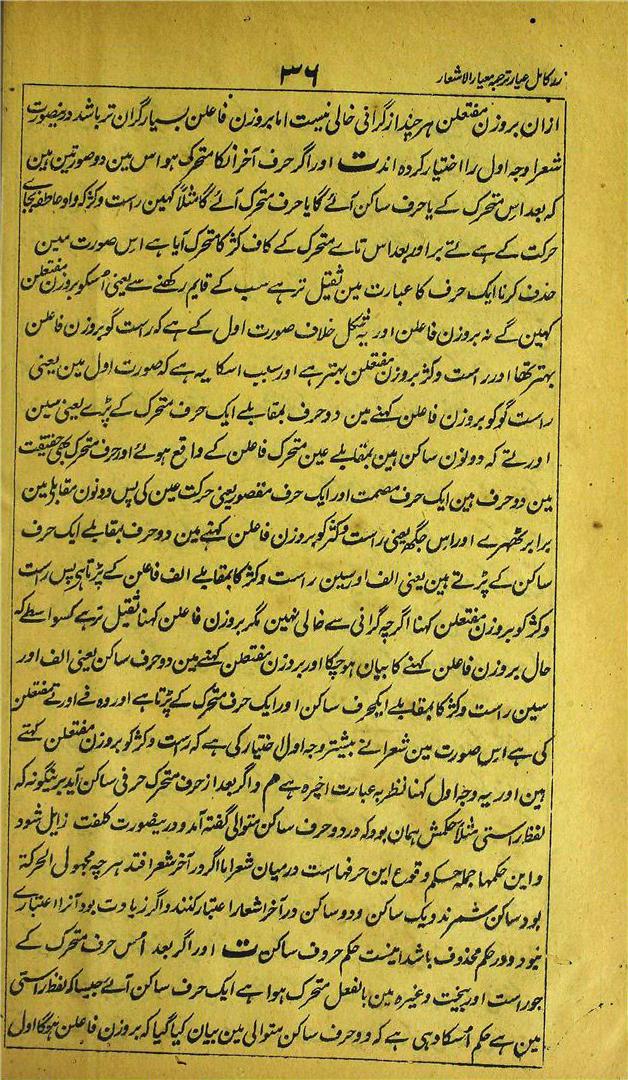 زر کامل عیار ترجمہ معیار الاشعار
۳۶
ازان بروزن مفتعلن ہر چند از گرانی خالی نیست اما بروزن فاعلن بسیار گران تر باشد درینصورت
شعرا وجہ اول را اختیار کردہ اند ت اور اگر حرف آخر انکا متحرک ہو اس مین دو صورتین ہین
کہ بعد اس متحرک کے یا حرف ساکن آئے گا یا حرف متحرک آئے گا مثلاً کہین راست وکژ کہ واو عاطفہ بجای
حرکت کے ہے تے پر اور بعد اس تاے متحرک کے کاف کژ کا متحرک آیا ہے اس صورت مین
حذف کرنا ایک حرف کا عبارت مین ثقیل تر ہے سب کے قایم رکھنے سے یعنی اُسکو بروزن مفتعلن
کہین گے نہ بروزن فاعلن اور یہ شکل خلاف صورت اول کے ہے کہ راست گو بروزن فاعلن
بہتر تھا اور راست وکژ بروزن مفتعلن بہتر ہے اور سبب اسکا یہ ہے کہ صورت اول مین یعنی
راست گو کو بروزن فاعلن کہنے مین دو حرف بمقابلے ایک حرف متحرک کے پڑے یعنی سین
اور تے کہ دونون ساکن ہین بمقابلے عین متحرک فاعلن کے واقع ہوئے اور حرف متحرک بھی حقیقت
مین دو حرف ہین ایک حرف مصمت اور ایک حرف مقصور یعنی حرکت عین کی پس دونون مقابلہ مین
برابر ٹھہرے اور اس جگہ یعنی راست وکژ کو بروزن فاعلن کہنے مین دو حرف بمقابلے ایک حرف
ساکن کے پڑتے ہین یعنی الف اور سین راست وکژ کا بمقابلے الف فاعلن کے پڑتا ہے پس راست
وکژ کو بروزن مفتعلن کہنا اگرچہ گرانی سے خالی نہین مگر بروزن فاعلن کہنا ثقیل تر ہے کسواسطے کہ
حال بروزن فاعلن کہنے کا بیان ہوچکا اور بروزن مفتعلن کہنے مین دو حرف ساکن یعنی الف اور
سین راست وکژ کا بمقابلے ایکحرف ساکن اور ایک حرف متحرک کے پڑتا ہے اور وہ فے اور تے مفتعلن
کی ہے اس صورت مین شعرا نے بیشتر وجہ اول اختیار کی ہے کہ راست وکژ کو بروزن مفتعلن کہتے
ہین اور یہ وجہ اول کہنا نظر بہ عبارت اخیرہ ہے م و اگر بعد از حرف متحرک حرفی ساکن آید برینگونہ کہ
لفظ راستی مثلاً حکمش ہمان بود کہ در دو حرف ساکن متوالی گفتہ آمد و درینصورت کلفت زایل شود
و این حکمہا جملہ حکم وقوع این حرفہاست درمیان شعر اما اگر در آخر شعر افتد ہرچہ مجہولی الحرکۃ
بود ساکن شمرند و یک ساکن و دو ساکن در آخر اشعار اعتبار کنند و اگر زیادت بود آنرا اعتباری
نبود و در حکم محذوف باشد اینست حکم حروف ساکن ت اور اگر بعد اُس حرف متحرک کے
جو راست اور بیخت وغیرہ مین بالفعل متحرک ہوا ہے ایک حرف ساکن آئے جیسا کہ لفظ راستی
مین ہے حکم اُسکا وہی ہے کہ دو حرف ساکن متوالی مین بیان کیا گیا کہ بروزن فاعلن ہوگا اول